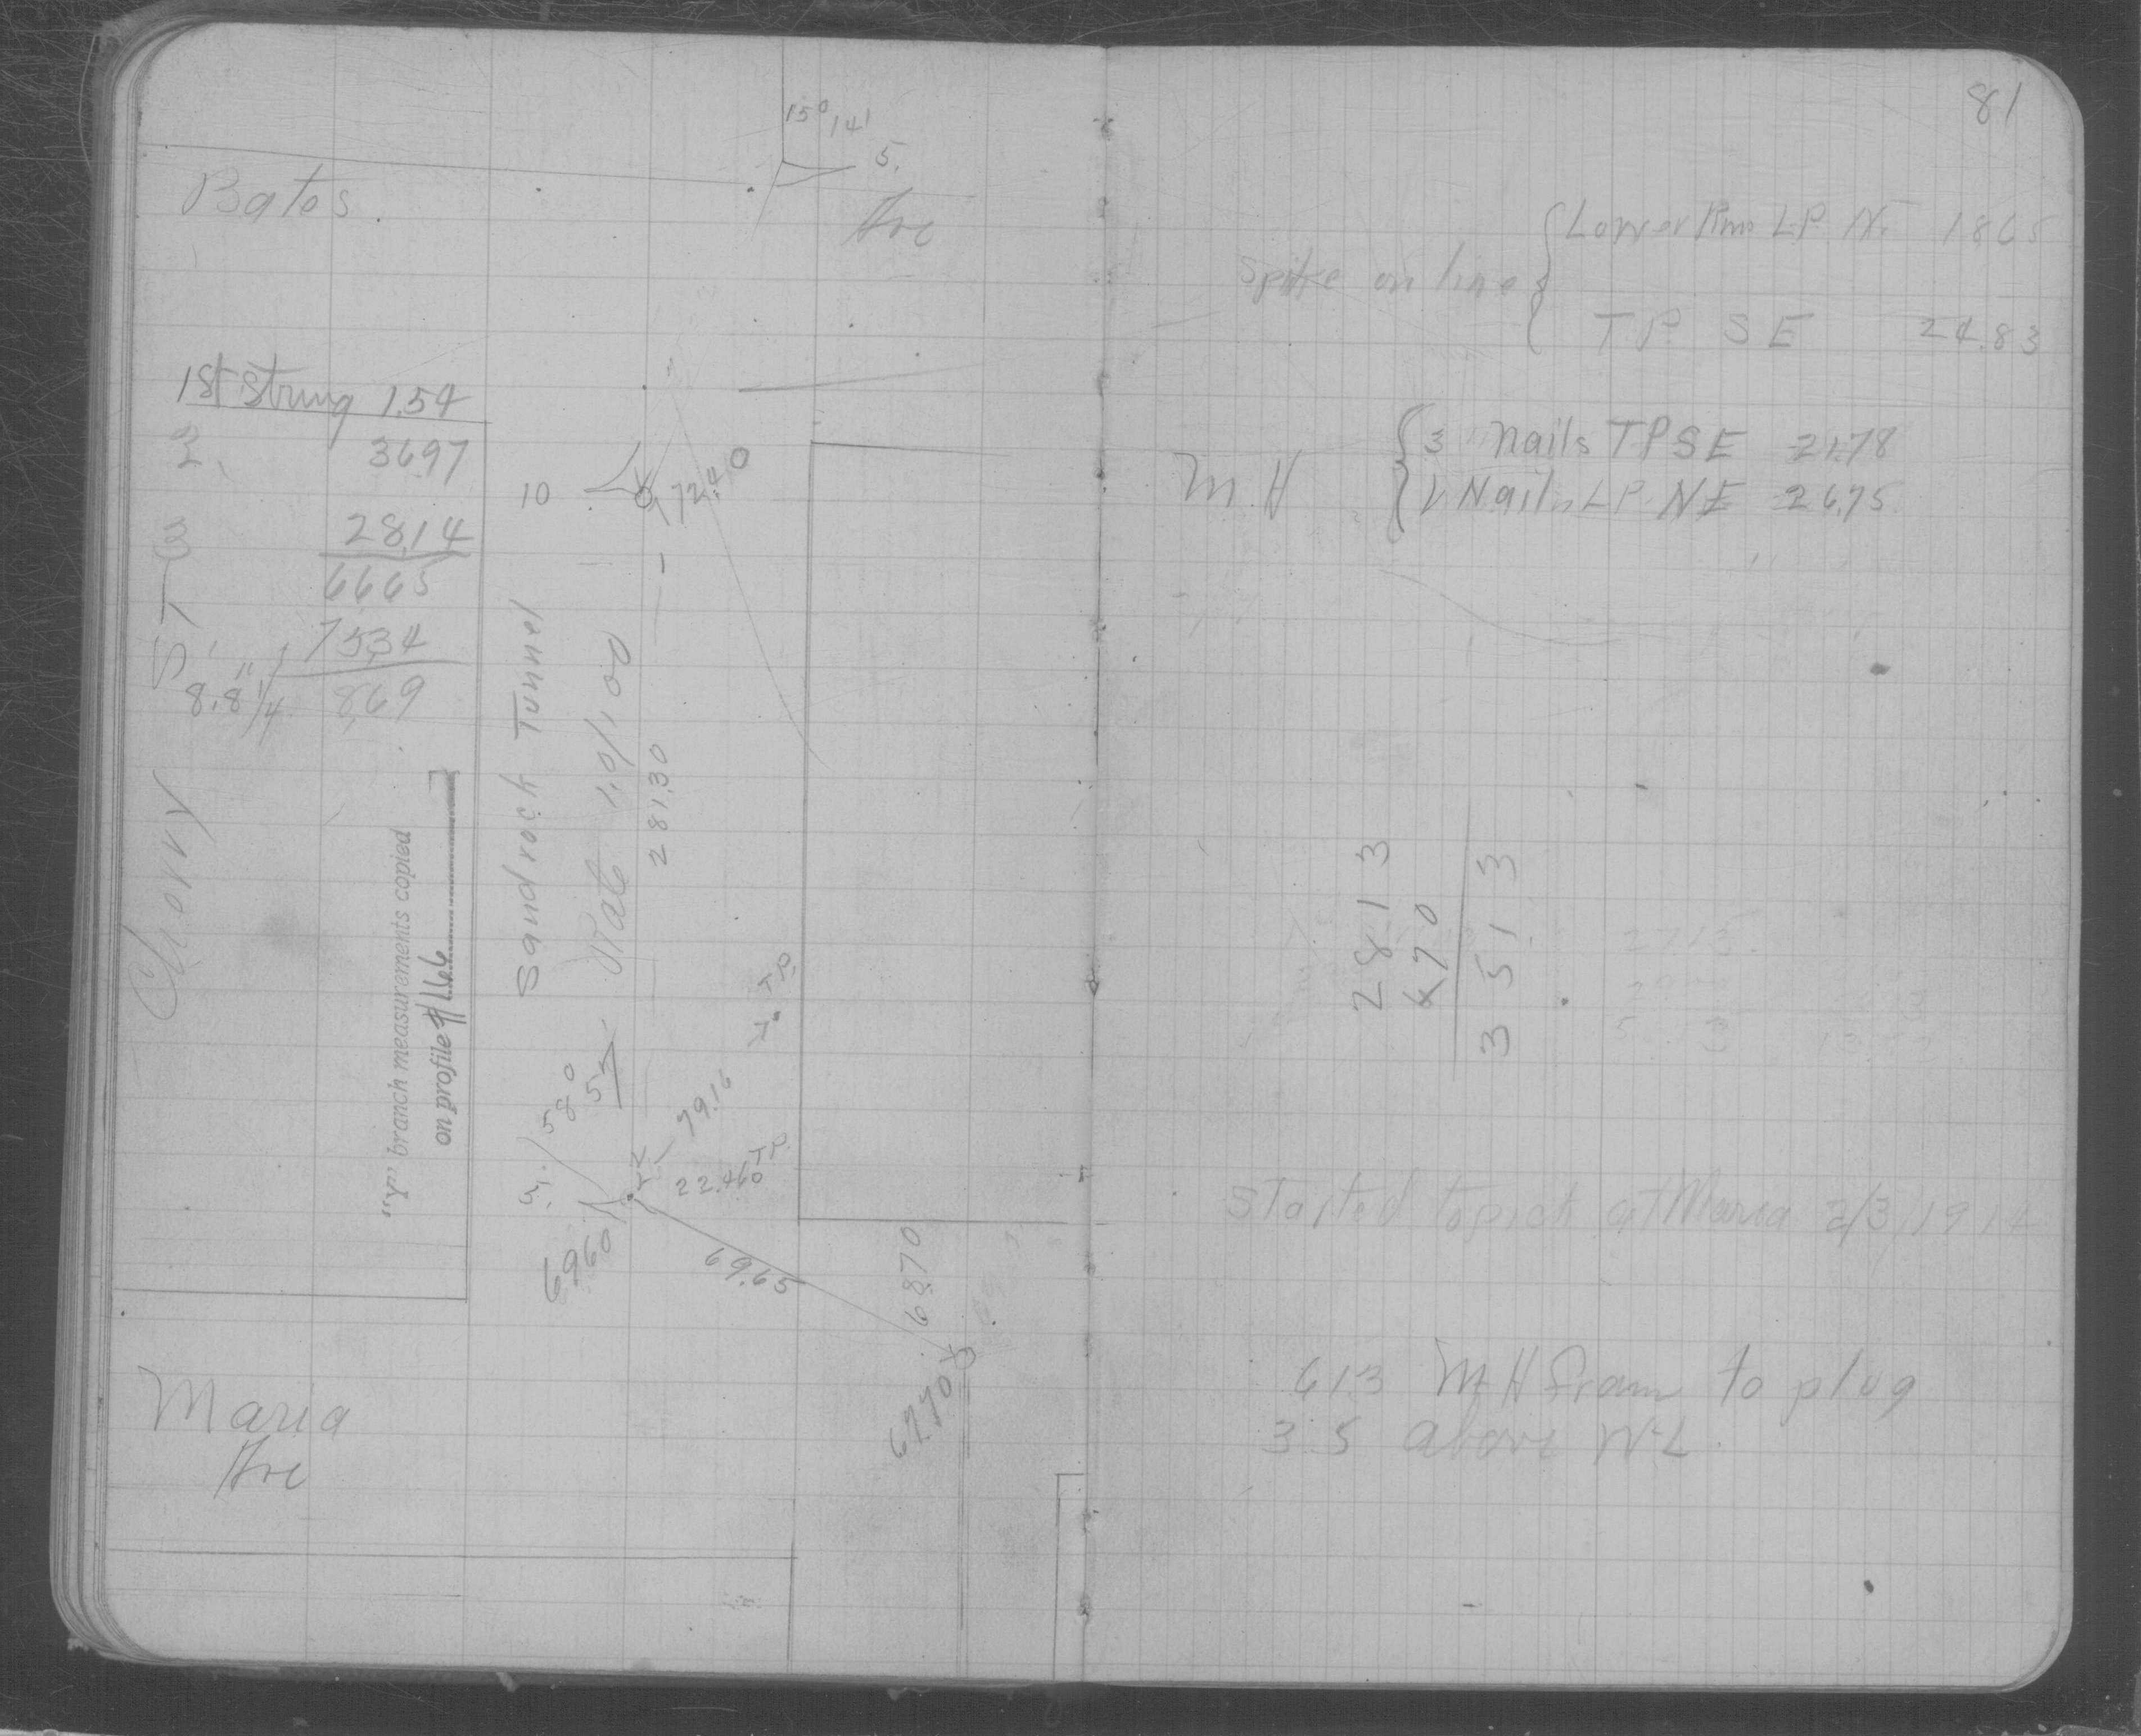 81
15° 14'
5.
Bates.
Ave
1st String 1.54
2. 36.97
3 28.14
66.65
75.34
8.69
8' 8 1/4"
10
72.40
Cherry
"Y" branch measurements copied
on profile #1166
Sandrock Tunnel
Rate 1.0/100
281.30
T.P.
79.16
22.46
T.P.
580
69.60
69.65
68.70
67.70
Maria
Ave
Spike on line
Lower Pin LP N. 18.65
TP SE 24.83
M.H
3 Nails TP SE 21.78
Nail LP NE 26.75
281 3
670
351 3
Started to pick at Maria 2/3, 1914
613 MH fram to plug
3.5 above WL